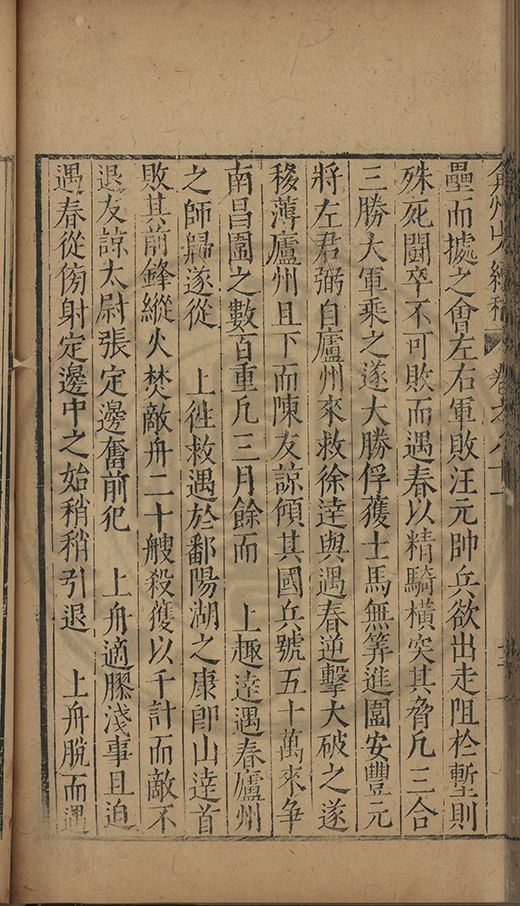 弇州山人續稿 卷之八十一
壘而據之會左右軍敗汪元帥兵欲出走阻於塹則
殊死鬪卒不可敗而遇春以精騎橫突其脅凡三合
三勝大軍乘之遂大勝俘獲士馬無筭進圍安豐元
將左君弼自廬州來救徐逹與遇春逆擊大破之遂
移薄廬州且下而陳友諒傾其國兵號五十萬來爭
南昌圍之數百重凡三月餘而　上趣逹遇春廬州
之師歸遂從　上徃救遇於鄱陽湖之康郎山逹首
敗其前鋒縱火焚敵舟二十艘殺獲以千計而敵不
退友諒太尉張定邊奮前犯　上舟適膠淺事且迫
遇春從傍射定邊中之始稍稍引退　上舟脫而遇